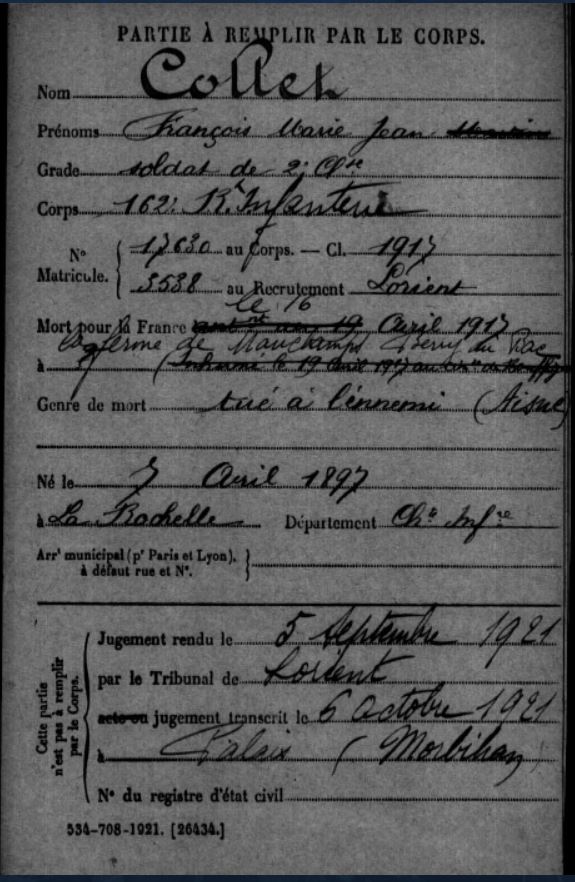 PARTIE À REMPLIR PAR LE CORPS.
Nom Collet
Prénoms François Marie Jean
Grade soldat de 2e Clse
Corps 162e R. Infanterie
No Matricule. { 17630 au Corps. — Cl. 1917
3588 au Recrutement Lorient
le 16
Mort pour la France 19 Avril 1917
la ferme de Mauchamp Berry au Bac
à (Inhumé le 19 Avril 1917 au
Genre de mort tué à l'ennemi (Aisne)
Né le 7 Avril 1897
à La Rochelle Département Chte Infre
Arrt municipal (pr Paris et Lyon), }
à défaut rue et No.
Cette partie n'est pas à remplir par le Corps.
Jugement rendu le 5 Septembre 1921
par le Tribunal de Lorient
acte ou jugement transcrit le 6 octobre 1921
à Palais (Morbihan)
No du registre d'état civil
534-708-1921. [26434.]